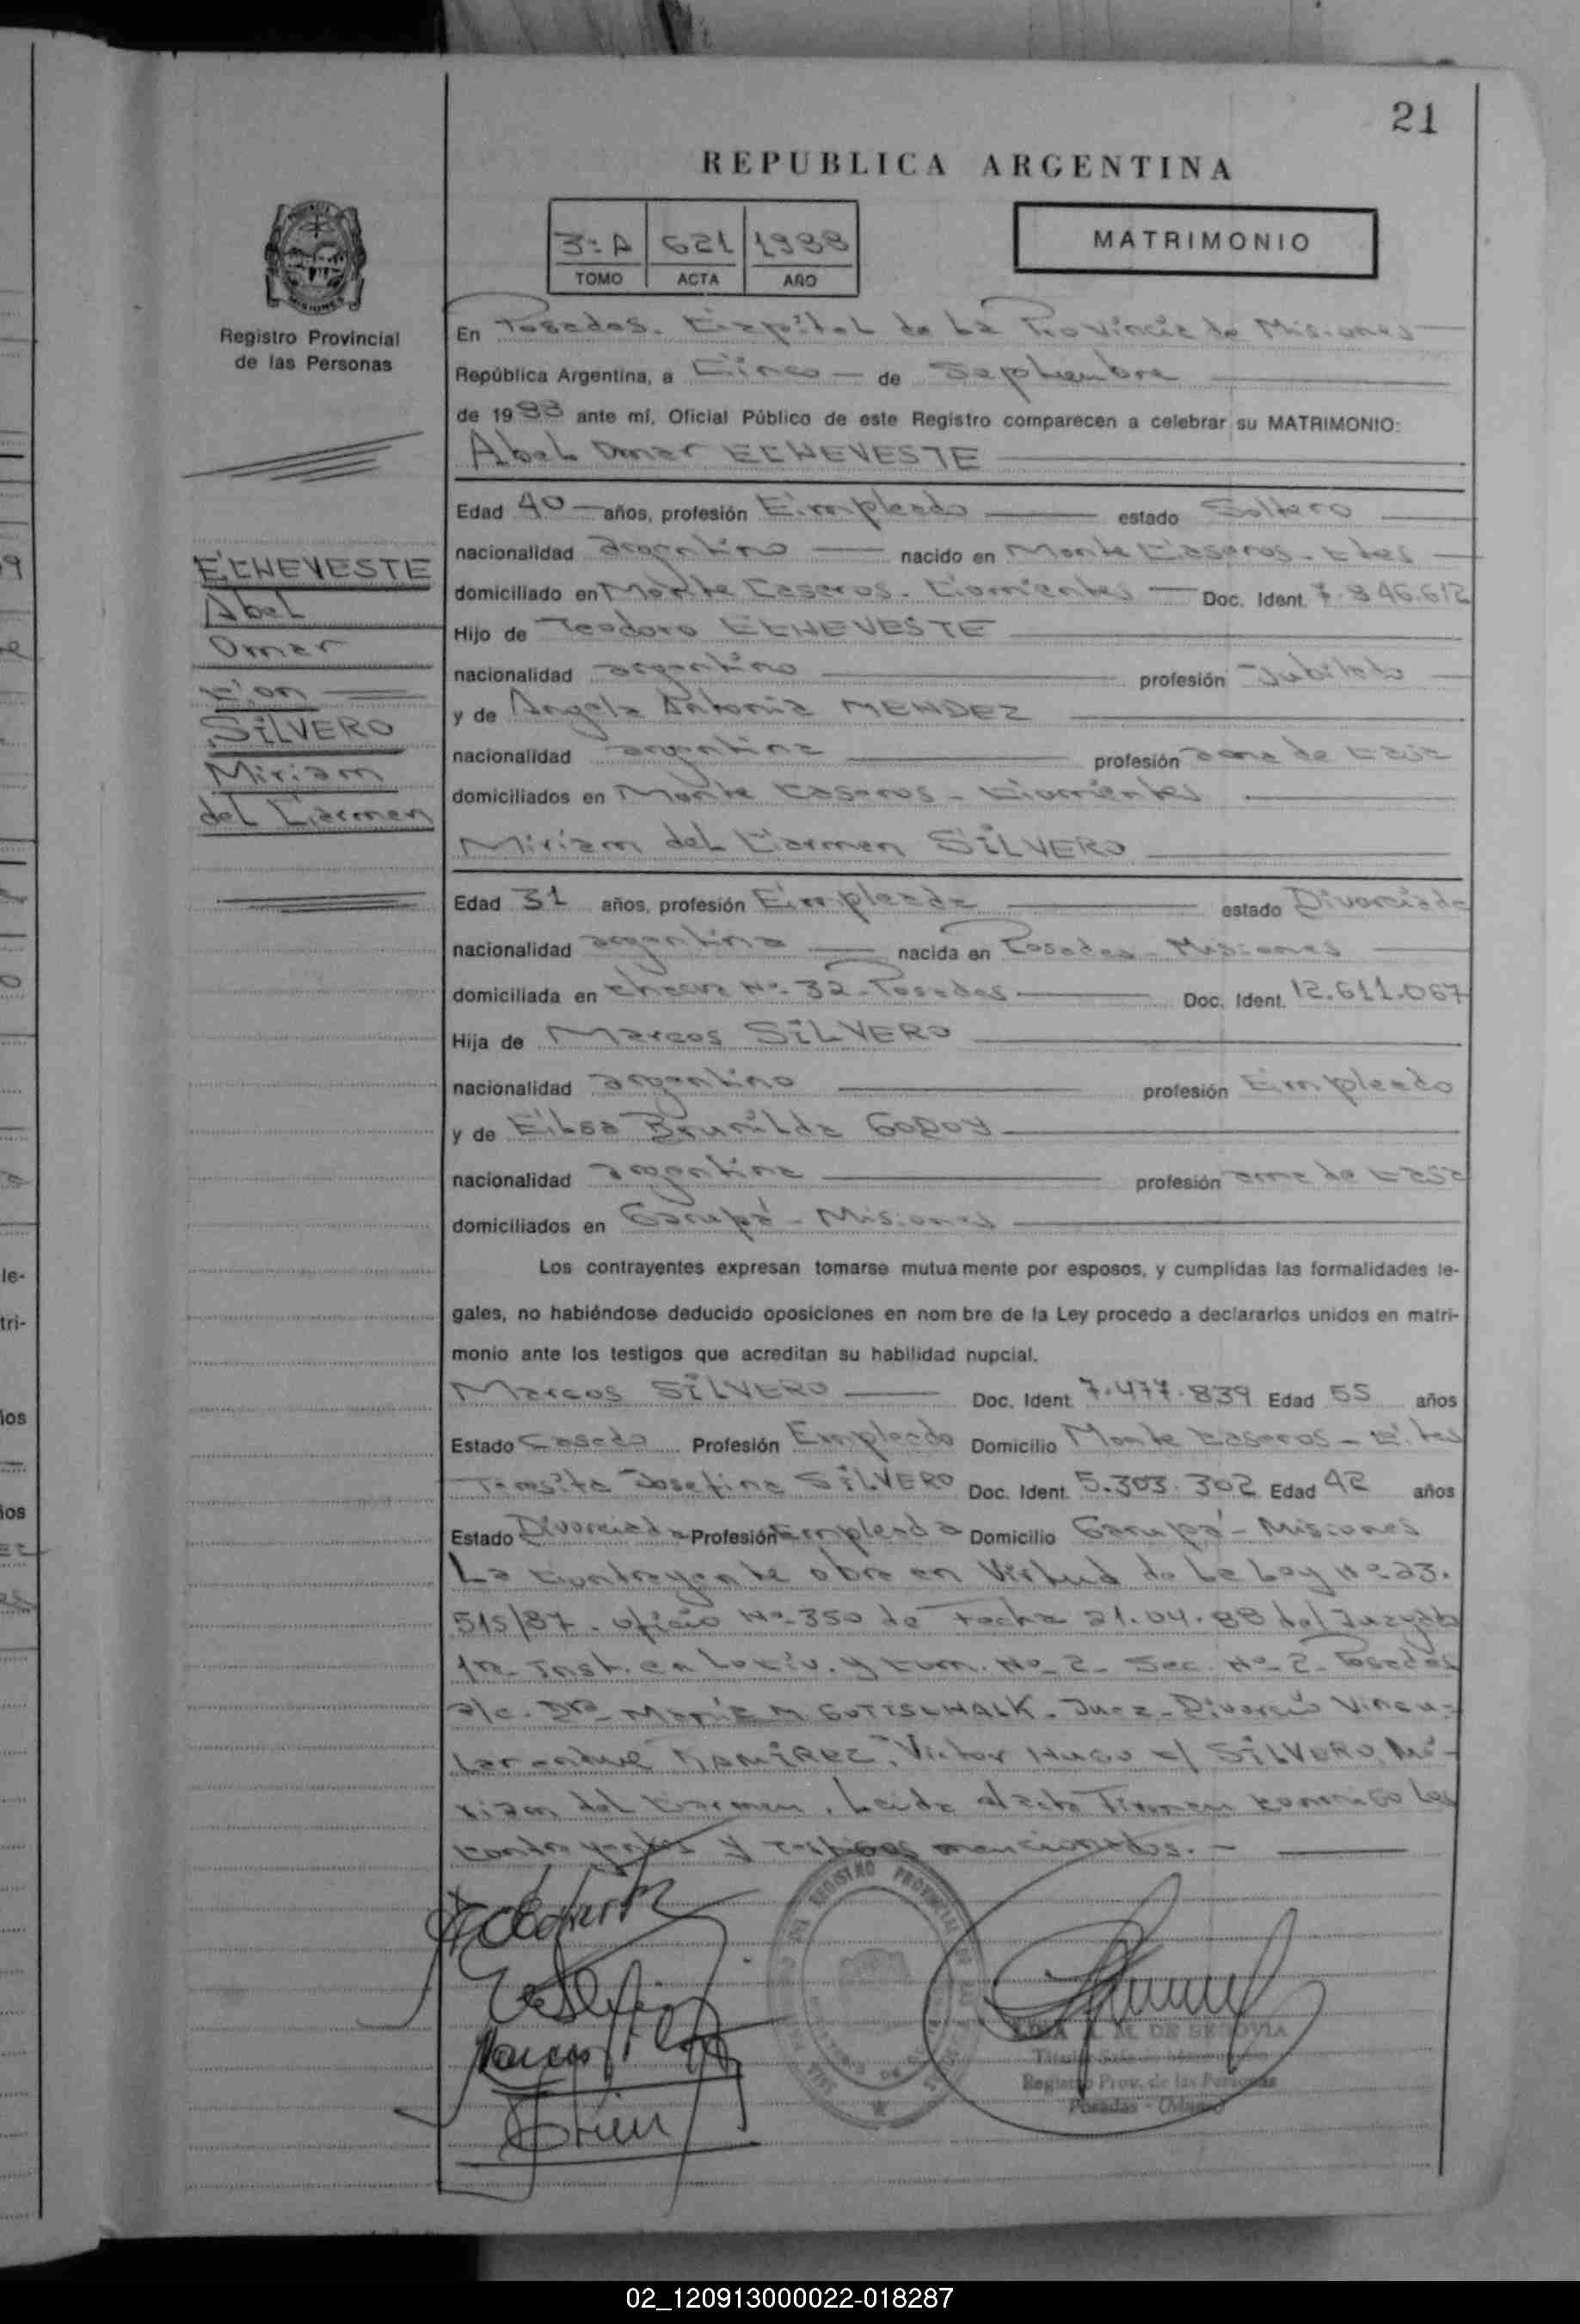 21
REPUBLICA ARGENTINA
3º A 621 1988
TOMO ACTA AÑO
MATRIMONIO
Registro Provincial
de las Personas
En Posadas. Capital de La Provincia de Misiones
República Argentina, a Cinco de Septiembre
de 1988 ante mí, Oficial Público de este Registro comparecen a celebrar su MATRIMONIO:
Abel Omar ECHEVESTE
Edad 40 años, profesión Empleado estado Soltero
nacionalidad argentino nacido en Monte Caseros - Ctes
domiciliado en Monte Caseros - Corrientes Doc. Ident. 7.846.612
Hijo de Teodoro ECHEVESTE
nacionalidad argentino profesión Jubilado
y de Angela Antonia MENDEZ
nacionalidad argentina profesión ama de casa
domiciliados en Monte Caseros - Corrientes
Miriam del Carmen SILVERO
Edad 31 años, profesión Empleada estado Divorciada
nacionalidad argentina nacida en Posadas - Misiones
domiciliada en Chacra Nº 32 - Posadas Doc. Ident. 12.611.067
Hija de Marcos SILVERO
nacionalidad argentino profesión Empleado
y de Elsa Brunilda GODOY
nacionalidad argentina profesión ama de casa
domiciliados en Garupá - Misiones
ECHEVESTE
Abel
Omar
Con
SILVERO
Miriam
del Carmen
Los contrayentes expresan tomarse mutuamente por esposos, y cumplidas las formalidades le-
gales, no habiéndose deducido oposiciones en nombre de la Ley procedo a declararlos unidos en matri-
monio ante los testigos que acreditan su habilidad nupcial.
Marcos SILVERO Doc. Ident. 7.477.839 Edad 55 años
Estado Casado Profesión Empleado Domicilio Monte Caseros - C.tes
Transita Josefina SILVERO Doc. Ident. 5.303.302 Edad 42 años
Estado Divorciada Profesión Empleada Domicilio Garupá - Misiones
La Contrayente obra en Virtud de La Ley Nº 23.
515/87. oficio Nº 350 de Fecha 21.04.88 del Juzgdo
1ra Inst. en Lo Civ. y Com. Nº 2 - Sec. Nº 2 - Posadas
a/c. Dra María M. GOTTSCHALK - Juez - Divorcio Vincu-
Lar RAMIREZ, Victor Hugo c/ SILVERO, Mi-
riam del Carmen. Leida el acta Firman conmigo Los
contrayentes y testigos mencionados. -
REGISTRO PROVINCIAL
M. DE SEGOVIA
Registro Prov. de las Personas
Posadas - (Mnes)
02_120913000022-018287